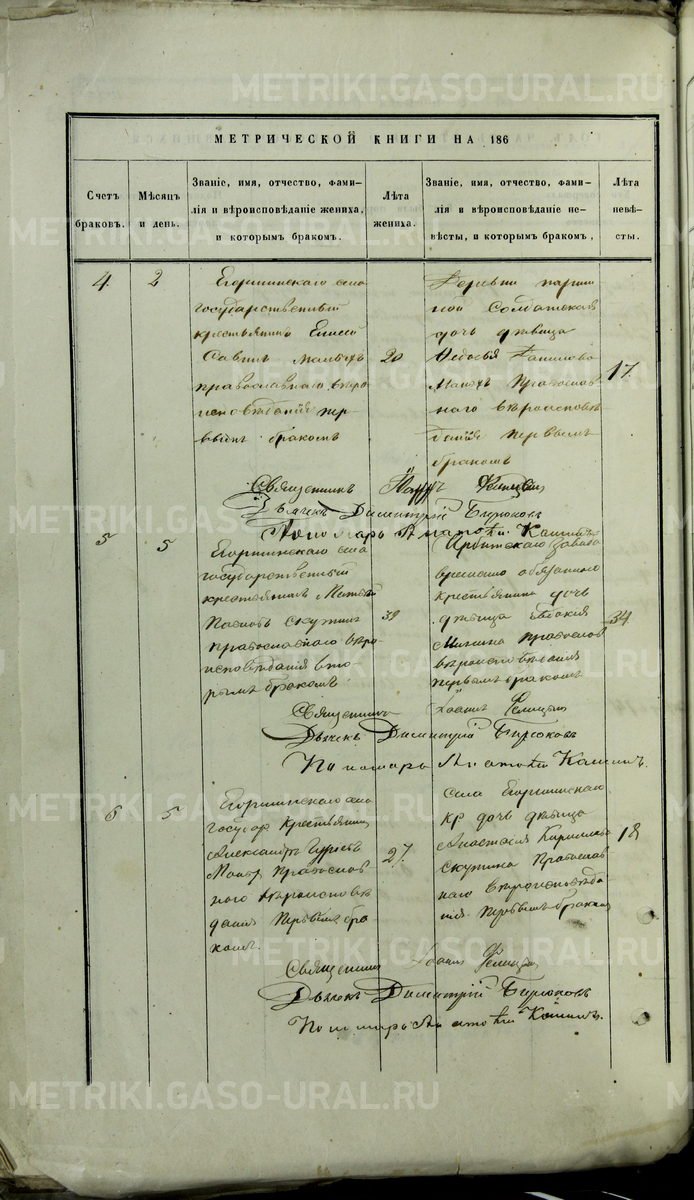 METRIKI.GASO-URAL.RU
МЕТРИЧЕСКОЙ КНИГИ НА 186
Счетъ браковъ.
Мѣсяцъ и день.
Званіе, имя, отчество, фами-
лія и вѣроисповѣданіе жениха,
и которымъ бракомъ.
Лѣта жениха.
Званіе, имя, отчество, фами-
лія и вѣроисповѣданіе не-
вѣсты, и которымъ бракомъ,
Лѣта невѣ-
сты.
4
2
Егоршинскаго села
государственный
крестьянинъ Елисей
Саввинъ
православнаго вѣро
исповѣданія пер
вымъ бракомъ
20
Деревни
Солдатская
дочь дѣвица
Ѳедосья Данилова
православ
наго вѣроисповѣ
данія первымъ
бракомъ
17
Священникъ
Дьячекъ Димитрій Бирюковъ
Пономарь
5
5
Егоршинскаго села
государственный
крестьянинъ
Скутинъ
православнаго вѣро
исповѣданія вто
рымъ бракомъ
39
Ирбитскаго завода
временно обязаннаго
крестьянина дочь
дѣвица
православ
вѣроисповѣданія
первымъ бракомъ
34
Священникъ Іоаннъ
Дьячекъ Димитрій Бирюковъ
Пономарь
6
5
Егоршинскаго села
государ крестьянинъ
Александръ
православ
наго вѣроисповѣ
данія первымъ бра
комъ.
27
села Егоршинскаго
кр дочь дѣвица
Анастасія Кириллова
Скутина православ
наго вѣроисповѣда
нія первымъ бракомъ
18
Священникъ Іоаннъ
Дьячекъ Димитрій Бирюковъ
Пономарь